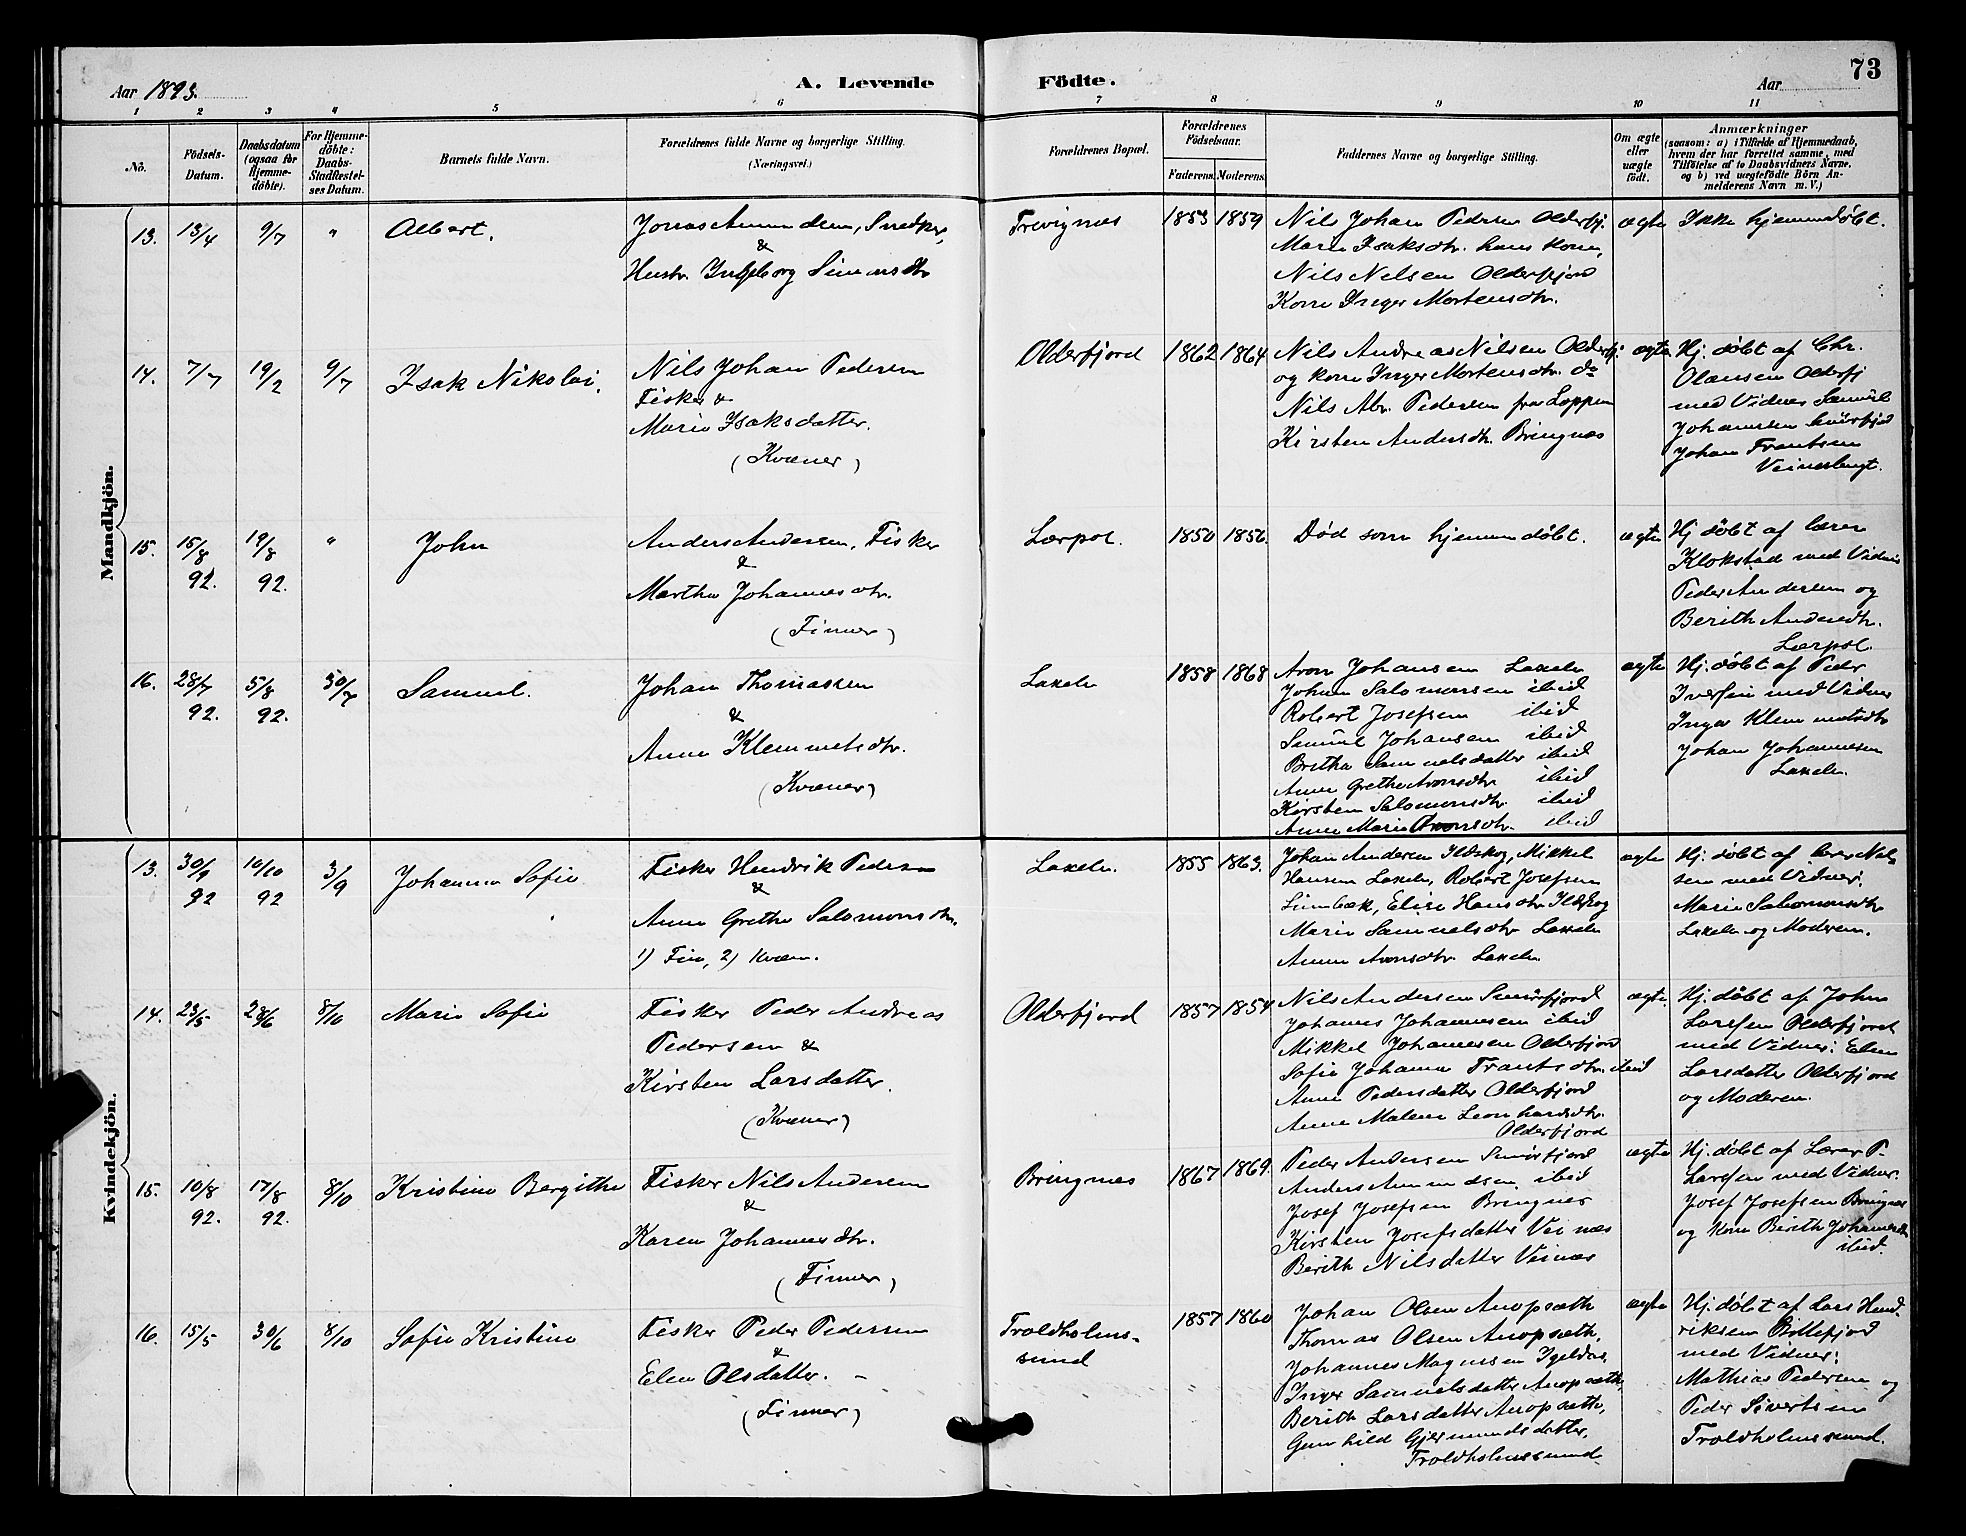 73
Aar 1893.
A. Levende Födte.
Aar
1 2 3 4 5 6 7 8 9 10 11
No.
Födsels-Datum.
Daabsdatum (ogsaa för Hjemme-döbte).
For Hjemme-döbte: Daabs-Stadfæstel-ses Datum.
Barnets fulde Navn.
Forældrenes fulde Navne og borgerlige Stilling.
(Næringsvei.)
Forældrenes Bopæl.
Forældrenes Födselsaar.
Faderens. Moderens.
Faddernes Navne og borgerlige Stilling.
Om ægte eller uægte födt.
Anmærkninger
(saasom: a) i Tilfælde af Hjemmedaab,
hvem der har forrettet samme, med
Tilföielse af to Daabsvidners Navne,
og b) ved uægtefödte Börn An-
melderens Navn m. V.)
Mandkjön.
13. 13/4 9/7 " Albert.
Jonas Amundsen, Snedker,
&
Hustr. Ingeborg Simonsdtr
Trevignæs 1853 1859
Nils Johan Pedersen Olderfj.
Marie Isaksdtr. hans kone,
Nils Nilsen Olderfjord
Kone Inger Mortensdtr.
ægte
Ikke hjemmedøbt.
14. 7/7 19/2 9/7 Isak Nikolai.
Nils Johan Pedersen
Fisker &
Marie Isaksdatter.
(Kvæner)
Olderfjord 1862 1864
Nils Andreas Nilsen Olderfj.
og kone Inger Mortensdtr. do
Nils Abr. Pedersen fra Loppen
Kirsten Andersdtr. Bringnæs
ægte
Hj. døbt af Chr.
Olausen Olderfj
med Vidner Samuel
Johannsen Smörfjord
Johan Frantsen
15. 15/8 92. 19/8 92. " John
Anders Andersen, Fisker
&
Martha Johannesdtr.
(Finner)
Lerpol. 1850 1856.
Død som hjemmedøbt.
ægte
Hj døbt af lærer
Klokstad med Vidner
Peder Andersen og
Berith Andersdtr.
Lerpol.
16. 28/7 92. 5/8 92. 30/7 Samuel.
Johan Thomassen
&
Anne Klemmetsdtr.
(Kvæner)
Laxelv 1858 1868
Aron Johansen Laxelv
Johan Salomonsen ibid
Robert Josefsen ibid
Samuel Johansen ibid
Britha Samuelsdatter ibid
Anne Grethe Aronsdtr ibid
Kirsten Salomonsdtr. ibid
Anne Marie Aronsdtr. ibid
ægte
Hj. døbt af Peder
Iversen med Vidner
Inger Klemmetsdtr
Johan Johannesen
Laxelv.
Kvindekjön.
13. 30/9 92 10/10 92 3/9 Johanna Sofie
Fisker Hendrik Pedersen
&
Anne Grethe Salomonsdtr.
1) Fin, 2) Kvæn.
Laxelv. 1855 1863.
Johan Andersen Ildskog, Mikkel
Hansen Laxelv, Robert Josefsen
Elise Hansdtr Ildskog
Marie Samuelsdtr Laxelv
Anne Aronsdtr. Laxelv.
ægte
Hj. døbt af lærer Nil
sen med Vidner:
Marie Salomonsdtr
Laxelv og Moderen.
14. 23/5 28/6 8/10 Marie Sofie
Fisker Peder Andreas
Pedersen &
Kirsten Larsdatter.
(Kvæner)
Olderfjord 1857 1854
Nils Andersen Smörfjord
Johannes Johannesen ibid
Mikkel Johannesen Olderfjord
Sofie Johanna Frantsdtr. ibid
Anne Pedersdatter Olderfjord
Anne Malene Leonhardsdtr.
Olderfjord
ægte
Hj. døbt af John
Larssen Olderfjord
med Vidner: Elen
Larsdatter Olderfjord
og Moderen.
15. 10/8 92. 17/8 92. 8/10 Kristine Bergithe
Fisker Nils Andersen
&
Karen Johannesdtr.
(Finner)
Bringnæs 1867 1869.
Peder Andersen Smörfjord
Anders Amundsen ibid
Josef Josefsen Bringnes
Kirsten Josefsdatter Veinæs
Berith Nilsdatter Veinæs
ægte
Hj. døbt af Lærer P.
Larssen med Vidner:
Josef Josefsen Bringnæs
og kone Berith Johannesdtr
ibid.
16. 15/5 30/6 8/10 Sofie Kristine
Fisker Peder Pedersen
&
Elen Olsdatter.
(Finner)
Troldholms-
sund 1857 1860
Johan Olsen Anopsæth
Thomas Olsen Anopsæth,
Johannes Magnssen Igeldas,
Inger Samuelsdatter Anopsæth,
Berith Larsdatter Anopsæth,
Gunhild Gjermundsdatter,
Troldholmssund
ægte
Hj. døbt af Lars Hend-
riksen Billefjord
med Vidner:
Mathias Pedersen og
Peder Sivertsen
Troldholmssund.